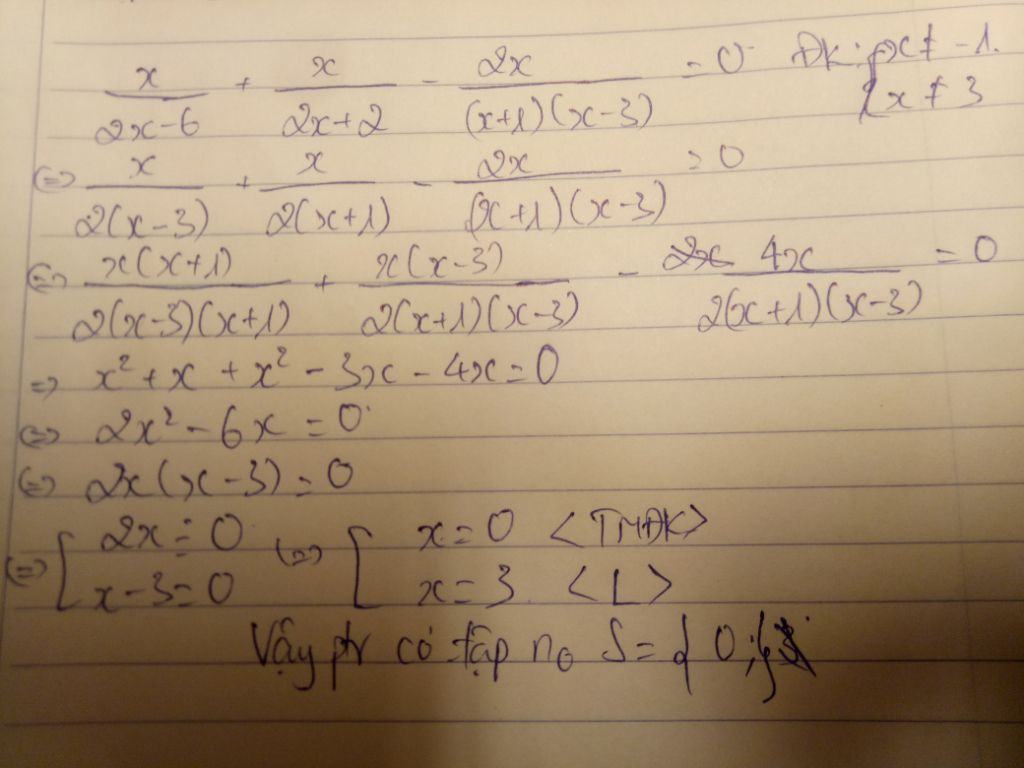 x/(2x-6) + x/(2x+2) - 2x/((x+1)(x-3)) = 0 ĐK: { x ≠ -1. x ≠ 3
(=) x/(2(x-3)) + x/(2(x+1)) - 2x/((x+1)(x-3)) = 0
(=) x(x+1)/(2(x-3)(x+1)) + x(x-3)/(2(x+1)(x-3)) - 4x/(2(x+1)(x-3)) = 0
=) x² + x + x² - 3x - 4x = 0
(=) 2x² - 6x = 0
(=) 2x(x-3) = 0
(=) [ 2x = 0 (=) [ x = 0 <TMĐK>
x-3 = 0 x = 3 <L>
Vậy ptr có tập no S = { 0 }